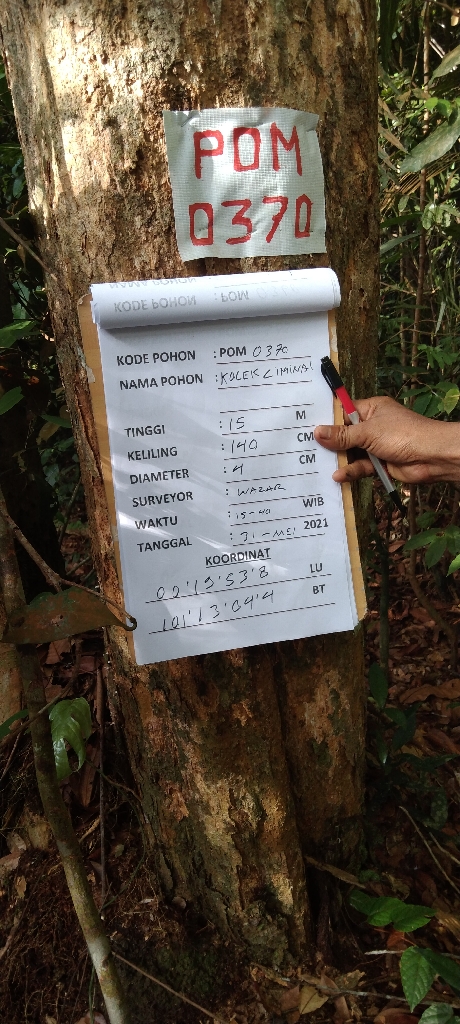 POM
0370
KODE POHON : POM
KODE POHON : POM 0370
NAMA POHON : KOLEK CIMINAI
TINGGI : 15 M
KELILING : 140 CM
DIAMETER : 4 CM
SURVEYOR : WAZAR
WAKTU : 15-40 WIB
TANGGAL : 31-MEI 2021
KOORDINAT
00'19'53'8 LU
101'13'04'4 BT